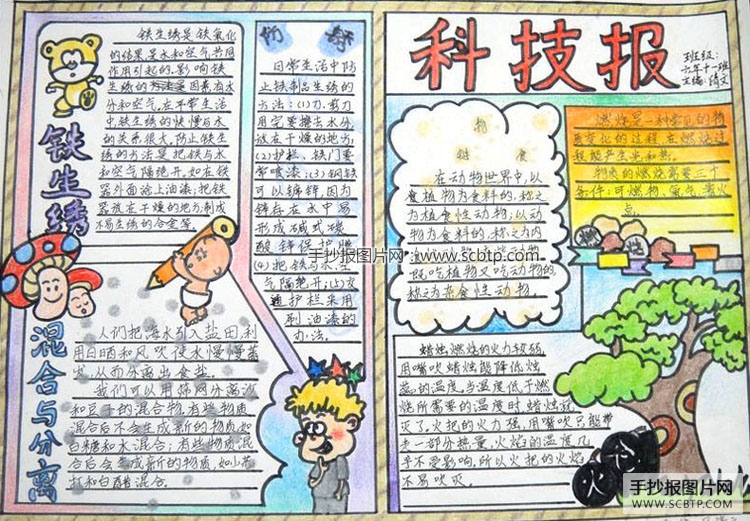 科技报
班级:
六年十一班
主编:倩文
铁生绣
铁生绣是铁氧化
的结果是水和空气共同
作用引起的.影响铁
生绣的因素有水
分和空气.在平常生活
中,铁生绣的快慢与水
的关系很大,防止铁生
绣的方法是把铁与水
和空气隔绝开.如在铁
器外面涂上油漆;把铁
器放在干燥的地方;制成
不易生绣的合金等。
日常生活中防
止铁制品生绣的
方法:(1)刀.剪刀
用完要擦去水分
放在干燥的地方;
(2)护栏、铁门要
常喷漆;(3)钢铁
可以镀锌,因为
锌在水中易
形成碱式碳
酸锌保护膜
(4)把铁与水.空
气隔绝开;
护栏采用
刷油漆的
办法.
混合与分离
人们把海水引入盐田,利
用日晒和风吹使水慢慢蒸
发,从而分离出食盐。
我们可以用筛网分离沙
和豆子的混合物,有些物质
混合后不会生成新的物质如白
糖和水混合;有些物质混
合后会生成新的物质,如小苏
打和白醋混合.
物
链 食
在动物世界中,以
食植物为食料的,称之
为植食性动物;以动
物为食料的,称之为肉
既吃植物又吃动物的
称之为杂食性动物.
燃烧是一种常见的物
质变化的过程在燃烧过
程能产生光和热。
物质的燃烧需要三个
条件:可燃物、氧气、着火
点.
燃烧
蜡烛燃烧的火力较弱,
用嘴吹蜡烛能降低烛
芯的温度,当温度低于燃
烧所需要的温度时蜡烛就
灭了,火把的火力强,用嘴吹只能带
走一部分热量,火焰的温度几
乎不受影响,所以火把的火
不易吹灭.
手抄报图片网:www.scbtp.com
手抄报图片网
WWW.SCBTP.COM